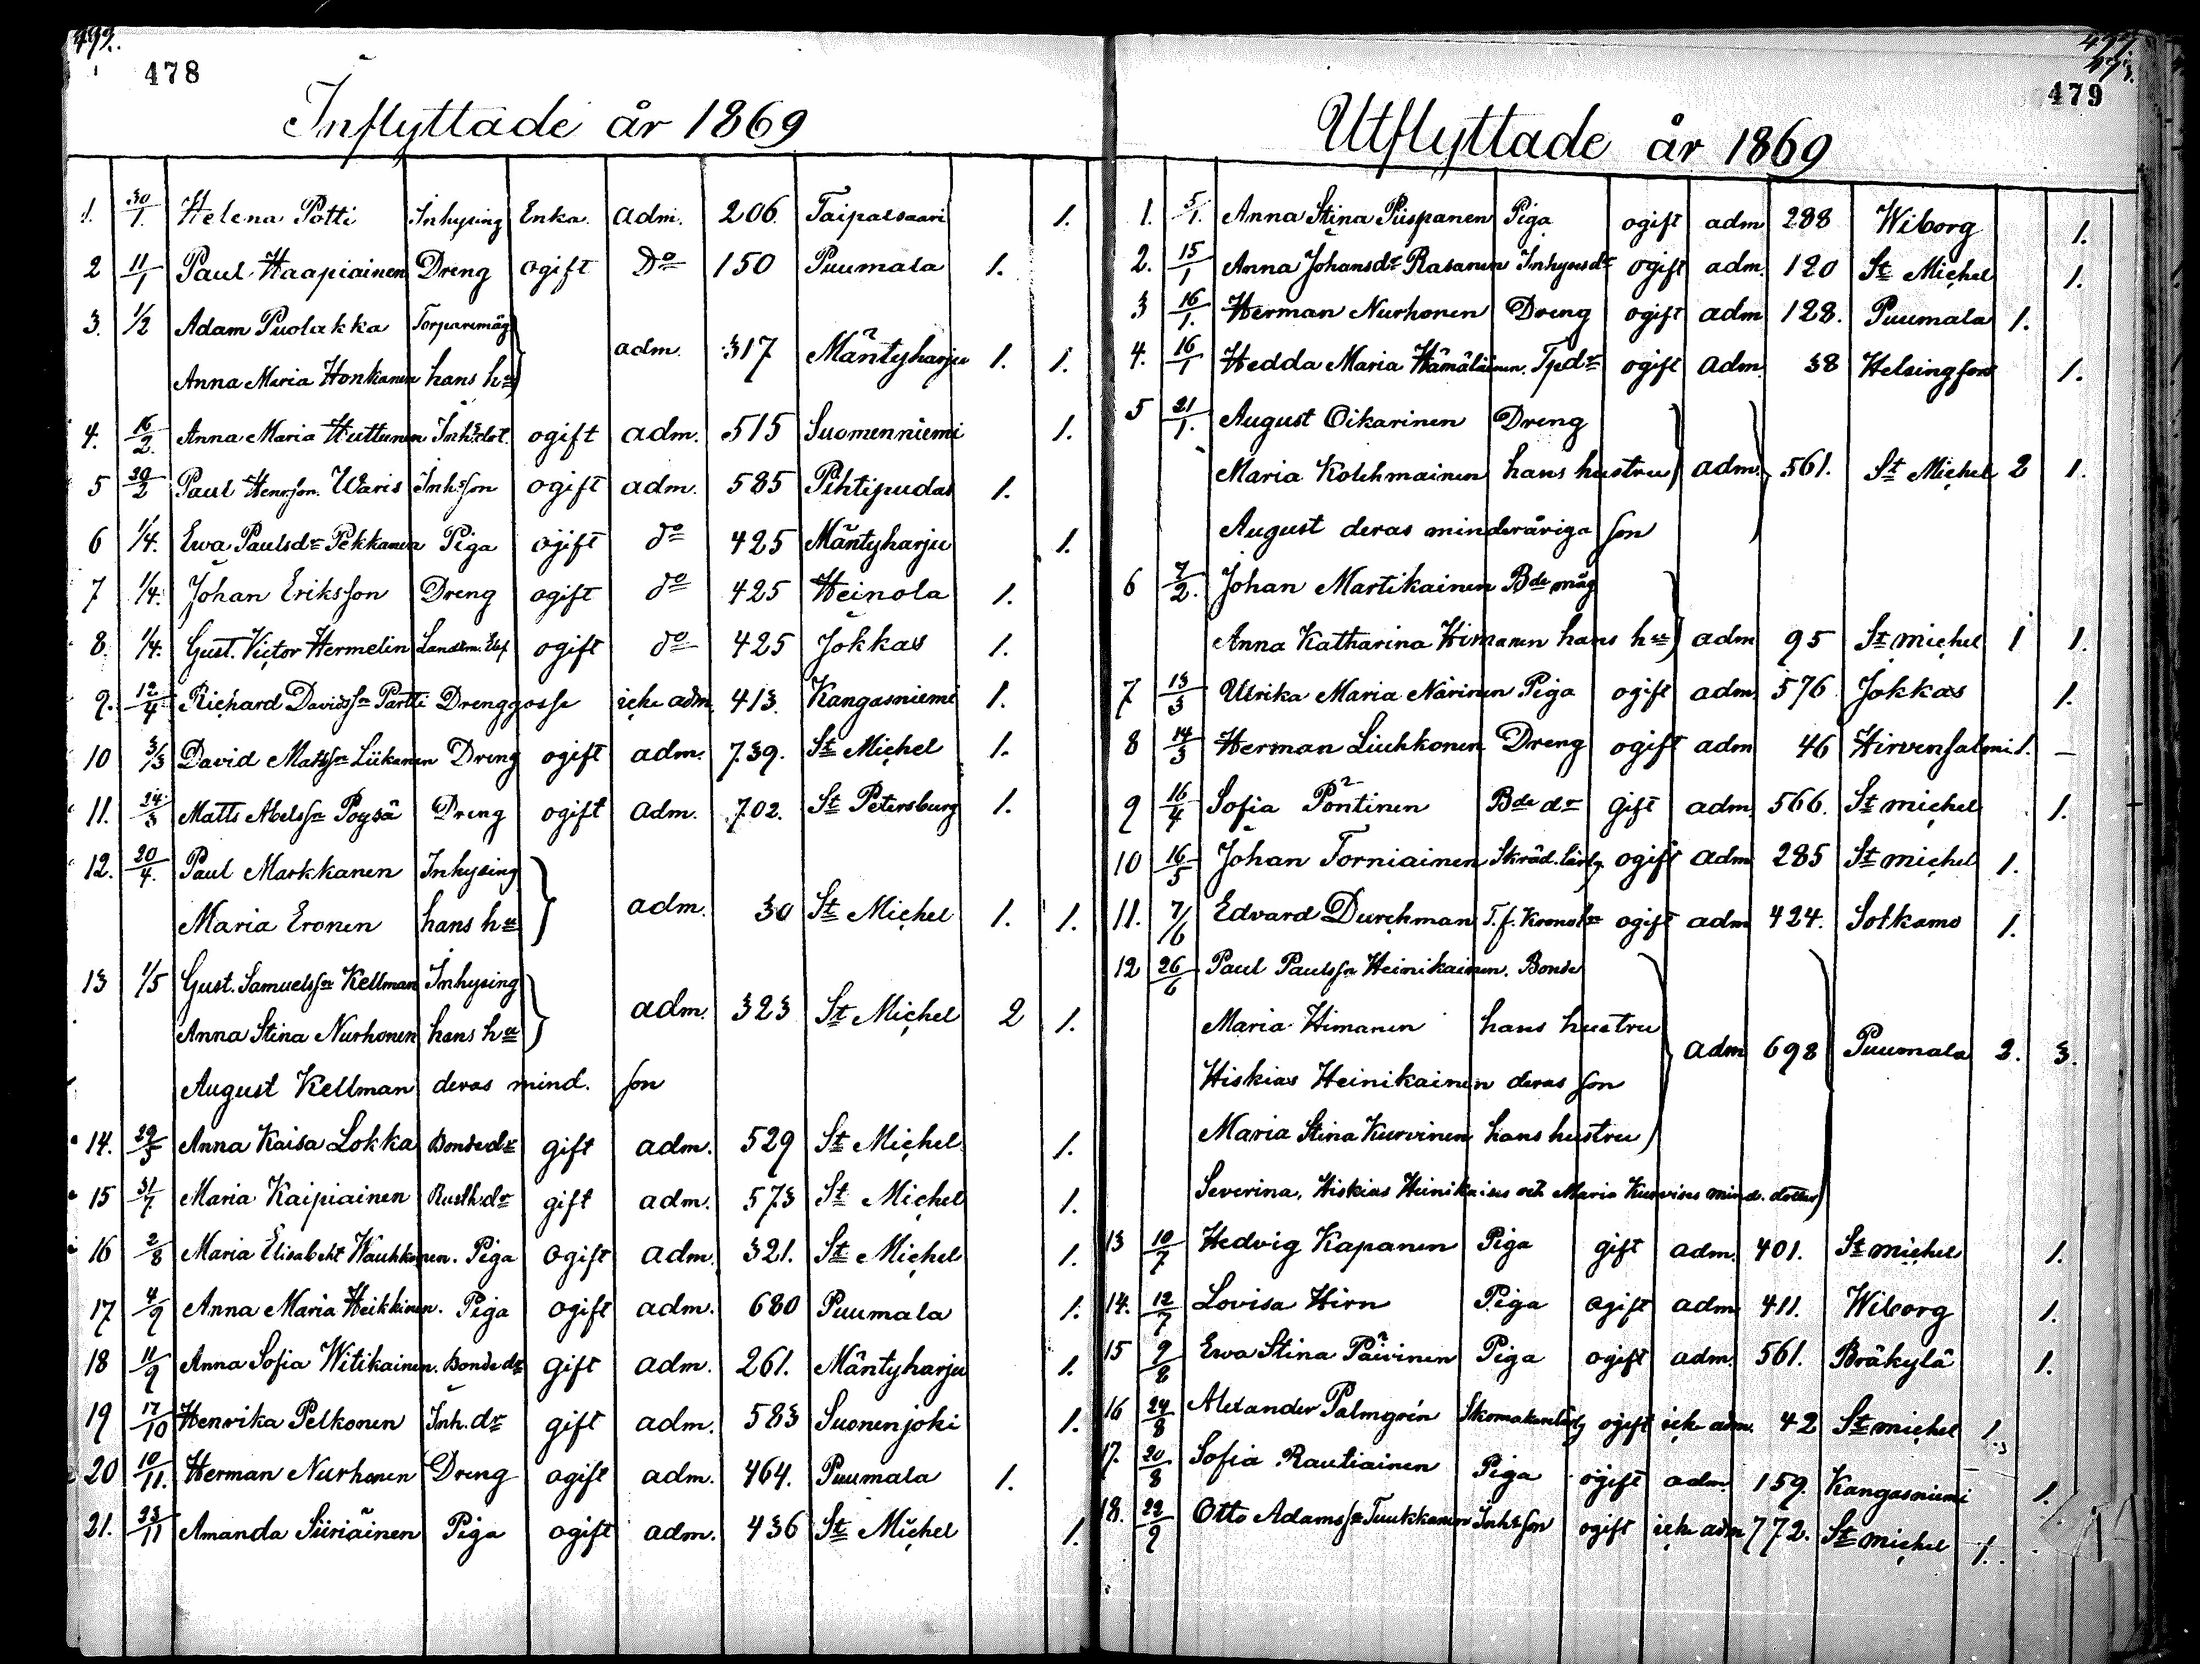 478
Inflyttade år 1869
1. 30/1. Helena Potti Inhysing Enka. adm. 206. Taipalsaari 1.
2 11/1 Paul Haapiainen Dreng ogift do 150 Puumala 1.
3. 1/2 Adam Puolakka Torparemåg
adm. 317 Mäntyharju 1. 1.
Anna Maria Honkanen hans hu
4. 16/2. Anna Maria Huttunen Inh:dot. ogift adm. 515 Suomenniemi 1.
5 20/2 Paul Henrsson. Waris Inh:son ogift adm. 585 Pihtipudas 1.
6 1/4. Ewa Paulsdr Pekkanen Piga ogift do 425 Mäntyharju 1.
7 1/4. Johan Eriksson Dreng ogift do 425 Heinola 1.
8. 1/4. Gust. Victor Hermelin Landtm. Elef ogift do 425 Jokkas 1.
9. 12/4 Richard Davidssn Partti Drenggosse icke adm. 413. Kangasniemi 1.
10 3/3 David Mattssn Liikanen Dreng ogift adm. 739. St Michel 1.
11. 24/3 Matts Abelssn Poysä Dreng ogift adm. 702. St Petersburg 1.
12. 20/4. Paul Markkanen Inhysing
adm. 30 St Michel 1. 1.
Maria Eronen hans hu
13 1/5 Gust. Samuelssn Kellman Inhysing
adm. 323 St Michel 2 1.
Anna Stina Nurhonen hans hu
August Kellman deras mind. son
14. 29/5 Anna Kaisa Lokka Bondedr gift adm. 529 St Michel 1.
15 31/7. Maria Kaipiainen Rusth:dr gift adm. 573 St Michel 1.
16 2/8 Maria Elisabeht Wauhkonen. Piga ogift adm. 321. St Michel 1.
17 4/9 Anna Maria Heikkinen. Piga ogift adm. 680 Puumala 1.
18 11/9 Anna Sofia Witikainen. Bondedr gift adm. 261. Mäntyharju 1.
19 17/10 Henrika Pelkonen Inh. dr gift adm. 583 Suonenjoki 1.
20 10/11. Herman Nurhonen Dreng ogift adm. 464. Puumala 1.
21. 23/11 Amanda Siiriäinen Piga ogift adm. 436 St Michel 1.
479
Utflyttade år 1869
1. 5/1. Anna Stina Piispanen Piga ogift adm 288 Wiborg 1.
2. 15/1 Anna Johansdr Rasanen Inhysesdr ogift adm. 120 St Michel 1.
3 16/1. Herman Nurhonen Dreng ogift adm 128. Puumala 1.
4. 16/1 Hedda Maria Hämäläinen. Tpdr ogift adm. 38 Helsingfors 1.
5 21/1. August Oikarinen Dreng
Maria Kolehmainen hans hustru adm. 561. St Michel 2 1.
August deras minderåriga son
6 7/2. Johan Martikainen Bde måg
Anna Katharina Himanen hans hu adm 95 St michel 1 1.
7 13/3 Ulrika Maria Närinen Piga ogift adm. 576 Jokkas 1.
8 14/3 Herman Liuhkonen Dreng ogift adm 46 Hirvensalmi 1. –
9 16/4 Sofia Pöntinen Bde dr gift adm 566. St michel 1.
10 16/5 Johan Torniainen Skräd. lärlg ogift adm 285 St michel 1.
11. 7/6 Edvard Durchman T.f. Kronolr ogift adm 424. Sotkamo 1.
12 26/6 Paul Paulssn Heinikainen. Bonde
Maria Himanen hans hustru
adm 698 Puumala 2. 3.
Hiskias Heinikainen deras son
Maria Stina Kurvinen hans hustru
Severina, Hiskias Heinikaises och Maria Kurvises mind. dotter
13 10/7 Hedvig Kapanen Piga gift adm. 401. St michel 1.
14. 12/7 Lovisa Hirn Piga ogift adm 411. Wiborg 1.
15 9/8 Ewa Stina Päivinen Piga ogift adm. 561. Bräkylä 1.
16 24/8 Alexander Palmgrén Skomakarelärlg ogift icke adm. 42 St michel 1.
17. 20/8 Sofia Rautiainen Piga ogift adm. 159. Kangasniemi 1.
18. 22/9 Otto Adamssn Tuukkanen Inh:son ogift icke adm 772. St michel 1.